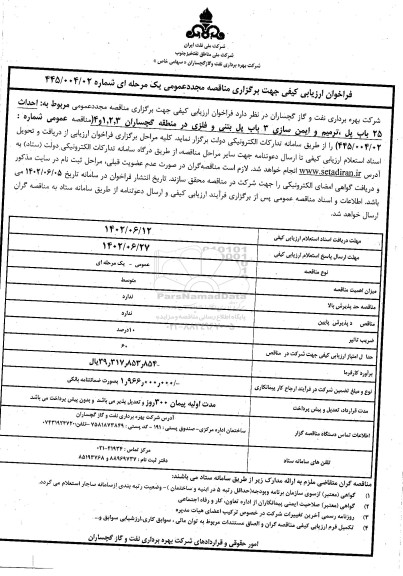 شرکت ملی نفت ایران
شرکت ملی مناطق نفتخیز جنوب
شرکت بهره برداری نفت و گاز گچساران (سهامی خاص)
فراخوان ارزیابی کیفی جهت برگزاری مناقصه مجدد عمومی یک مرحله ای شماره ۴۴۵/۰۰۴/۰۲
شرکت بهره برداری نفت و گاز گچساران در نظر دارد فراخوان ارزیابی کیفی جهت برگزاری مناقصه مجدد عمومی مربوط به: احداث
۲۵ باب پل ،ترمیم و ایمن سازی ۲ باب پل بتنی و فلزی در منطقه گچساران ۱،۲،۳و۴(مناقصه عمومی شماره :
۴۴۵/۰۰۴/۰۲) را از طریق سامانه تدارکات الکترونیکی دولت برگزار نماید. کلیه مراحل برگزاری فراخوان ارزیابی از دریافت و تحویل
اسناد استعلام ارزیابی کیفی تا ارسال دعوتنامه جهت سایر مراحل مناقصه، از طریق درگاه سامانه تدارکات الکترونیکی دولت (ستاد) به
آدرس www.setadiran.ir انجام خواهد شد. لازم است مناقصه گران در صورت عدم عضویت قبلی، مراحل ثبت نام در سایت مذکور
و دریافت گواهی امضای الکترونیکی را جهت شرکت در مناقصه محقق سازند. تاریخ انتشار فراخوان در سامانه تاریخ ۱۴۰۲/۰۶/۰۵ می
باشد. اطلاعات و اسناد مناقصه عمومی پس از برگزاری فرآیند ارزیابی کیفی و ارسال دعوتنامه از طریق سامانه ستاد به مناقصه گران
ارسال خواهد شد.
مهلت دریافت اسناد استعلام ارزیابی کیفی
۱۴۰۲/۰۶/۱۲
مهلت ارسال پاسخ استعلام ارزیابی کیفی
۱۴۰۲/۰۶/۲۷
نوع مناقصه
عمومی - یک مرحله ای
میزان اهمیت مناقصه
متوسط
مناقصه حد پذیرش بالا
ندارد
مناقصه د پذیرش پایین
ندارد
ضریب تاثیر
۱۰درصد
حداقل امتیاز ارزیابی کیفی جهت شرکت در مناقصه
۶۰
برآورد کارفرما
۳۹,۳۱۷,۸۵۳,۸۵۴ریال
نوع و مبلغ تضمین شرکت در فرآیند ارجاع کار پیمانکاری
۱,۹۶۶,۰۰۰,۰۰۰/- بصورت ضمانتنامه بانکی
مدت قرارداد، تعدیل و پیش پرداخت
مدت اولیه پیمان ۳۰۰روز و تعدیل پذیر می باشد و بدون پیش پرداخت می باشد
اطلاعات تماس دستگاه مناقصه گزار
آدرس شرکت بهره برداری نفت و گاز گچساران
ساختمان اداره مرکزی- صندوق پستی: ۱۹۱ - کد پستی: ۷۵۸۱۸۷۳۸۴۹
تلفن های سامانه ستاد
مرکز تماس: ۴۱۹۳۴-۰۲۱
دفتر ثبت نام : ۸۸۹۶۹۷۳۷ و ۸۵۱۹۳۷۶۸
مناقصه گران متقاضی ملزم به ارائه مدارک زیر از طریق سامانه ستاد می باشند:
۱) گواهی (معتبر) ازسوی سازمان برنامه وبودجه(حداقل رتبه ۵ در ابنیه و ساختمان )- وضعیت رتبه بندی ازسامانه ساجار استعلام می گردد.
۲) گواهی (معتبر) صلاحیت ایمنی پیمانکاران از اداره تعاون، کار و رفاه اجتماعی
۳) روزنامه رسمی آخرین تغییرات شرکت در خصوص ترکیب اعضای هیات مدیره
۴) تکمیل فرم ارزیابی کیفی مناقصه گران و الصاق مستندات مربوط به توان مالی ، سوابق کاری،ارزشیابی سوابق و...
امور حقوقی و قراردادهای شرکت بهره برداری نفت و گاز گچساران
ParsNamadData